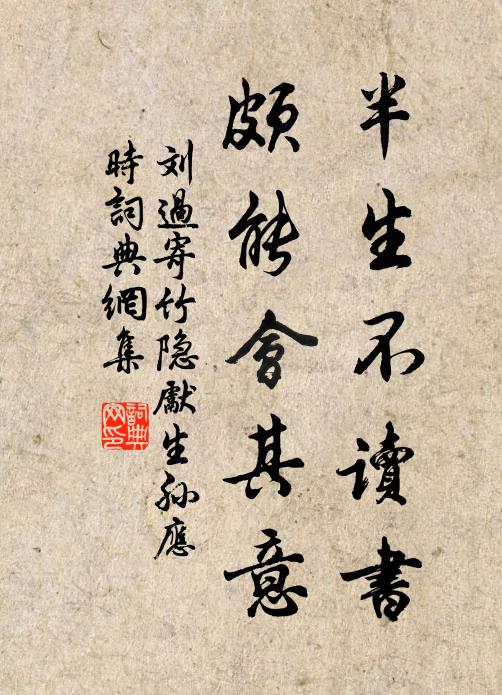 半生不讀書
頗能會其意
刘過寄竹隐獻生孙應
時詞典網集
詞典網印